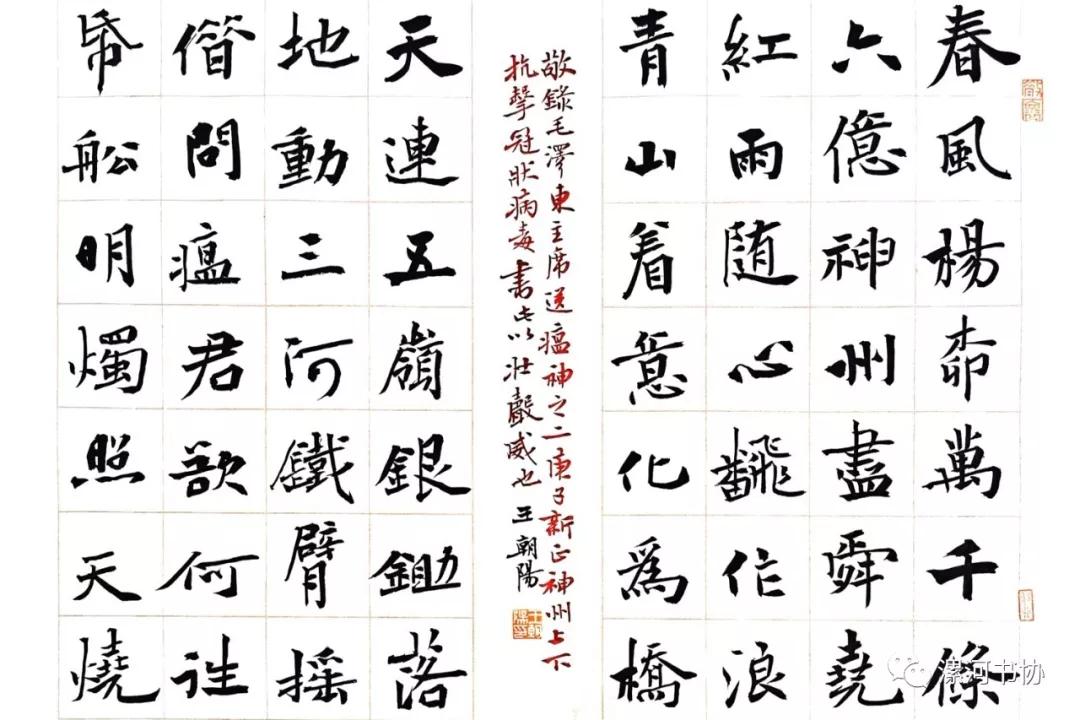 春風楊桺萬千條
六億神州盡舜堯
紅雨随心飜作浪
青山着意化爲橋
敬錄毛澤東主席送瘟神之二庚子新正神州上下
抗擊冠狀病毒書此以壯聲威也 王朝陽
天連五嶺銀鋤落
地動三河鐵臂摇
借問瘟君欲何往
帋船明燭照天燒
漯河书协